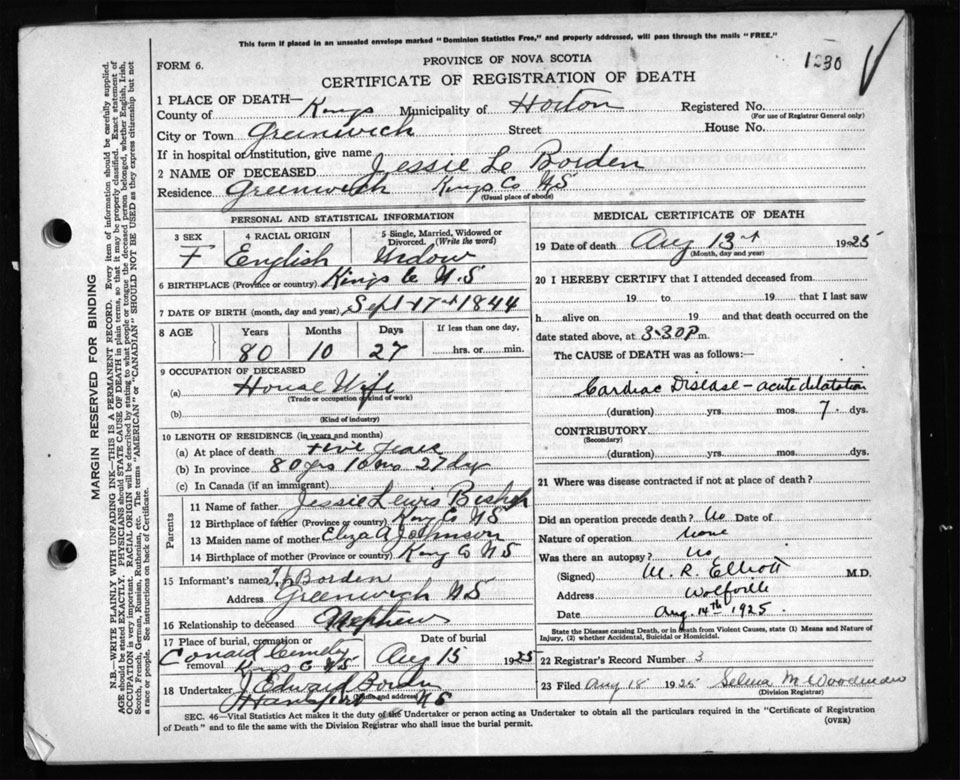 This form if placed in an unsealed envelope marked "Dominion Statistics Free," and properly addressed, will pass through the mails "FREE."
FORM 6.
PROVINCE OF NOVA SCOTIA
1230
CERTIFICATE OF REGISTRATION OF DEATH
MARGIN RESERVED FOR BINDING
N.B.—WRITE PLAINLY WITH UNFADING INK—THIS IS A PERMANENT RECORD. Every item of information should be carefully supplied.
AGE should be stated EXACTLY. PHYSICIANS should STATE CAUSE OF DEATH in plain terms, so that it may be properly classified. Exact statement of
OCCUPATION is very important. RACIAL ORIGIN will be described by stating to what people or tongue the deceased person belonged, whether English, Irish,
Scotch, French, German, Russian, Ruthenian, etc. The terms "AMERICAN" or "CANADIAN" SHOULD NOT BE USED as they express citizenship but not
a race or people. See instructions on back of Certificate.
1 PLACE OF DEATH—
County of Kings Municipality of Horton Registered No.
(For use of Registrar General only)
City or Town Greenwich Street House No.
If in hospital or institution, give name
2 NAME OF DECEASED Jessie Borden
Residence Greenwich Kings Co NS
(Usual place of abode)
PERSONAL AND STATISTICAL INFORMATION
3 SEX 4 RACIAL ORIGIN 5 Single, Married, Widowed or Divorced. (Write the word)
F English Widow
6 BIRTHPLACE (Province or country) Kings Co N.S
7 DATE OF BIRTH (month, day and year) Sept 17 1844
8 AGE Years Months Days If less than one day,
80 10 27 hrs. or min.
9 OCCUPATION OF DECEASED
(a) House Wife
(Trade or occupation or kind of work)
(b)
(Kind of industry)
10 LENGTH OF RESIDENCE (in years and months)
(a) At place of death five years
(b) In province 80 yrs 10 mo 27 day
(c) In Canada (if an immigrant)
Parents
11 Name of father Jessie Lewis Bishop
12 Birthplace of father (Province or country) King Co NS
13 Maiden name of mother Eliza A Johnson
14 Birthplace of mother (Province or country) King Co NS
15 Informant's name Borden
Address Greenwich NS
16 Relationship to deceased Nephew
17 Place of burial, cremation or removal Date of burial
Kings Co NS Aug 15 1925
18 Undertaker J Edward Borden
NS
MEDICAL CERTIFICATE OF DEATH
19 Date of death Aug 13 1925
(Month, day and year)
20 I HEREBY CERTIFY that I attended deceased from
19 to 19 that I last saw
h alive on 19 and that death occurred on the
date stated above, at 3.30 P m.
The CAUSE of DEATH was as follows:
Cardiac Disease – acute dilatation
(duration) yrs. mos. 7 dys.
CONTRIBUTORY
(Secondary)
(duration) yrs. mos. dys.
21 Where was disease contracted if not at place of death?
Did an operation precede death? No Date of
Nature of operation none
Was there an autopsy? No
(Signed) M. R. Elliott M.D.
Address Wolfville
Date Aug. 14th 1925.
State the Disease causing Death, or in Death from Violent Causes, state (1) Means and Nature of
Injury, (2) whether Accidental, Suicidal or Homicidal.
22 Registrar's Record Number 3
23 Filed Aug 18 1925 Selina M Woodman
(Division Registrar)
SEC. 46—Vital Statistics Act makes it the duty of the Undertaker or person acting as Undertaker to obtain all the particulars required in the "Certificate of Registration
of Death" and to file the same with the Division Registrar who shall issue the burial permit.
(OVER)